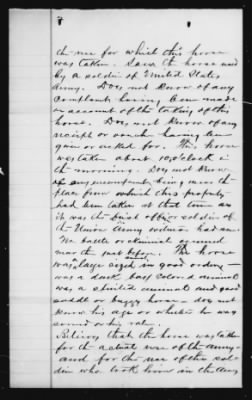 the use for which this horse
was taken. Saw the horse used
by a soldier of United States
Army. Does not know of any
Complaint having been made
on account of the taking of this
horse. Does not know of any
receipt or voucher having been
given or asked for. This horse
was taken about 10 o'clock in
the morning. Does not know
of any encampment being near the
place from which this property
had been taken at that time as
it was the first officer or soldier of
the Union Army witness had seen.
No battle or skirmish occurred
near the past before. The horse
was large sized in good order,
was a dark bay Colored animal
was a spirited animal and good
saddle or buggy horse - does not
know his age or whether he was
sound or his rate.
Believes that the horse was taken
for the actual use of the army
and for the use of the sol-
dier who took him in the Army